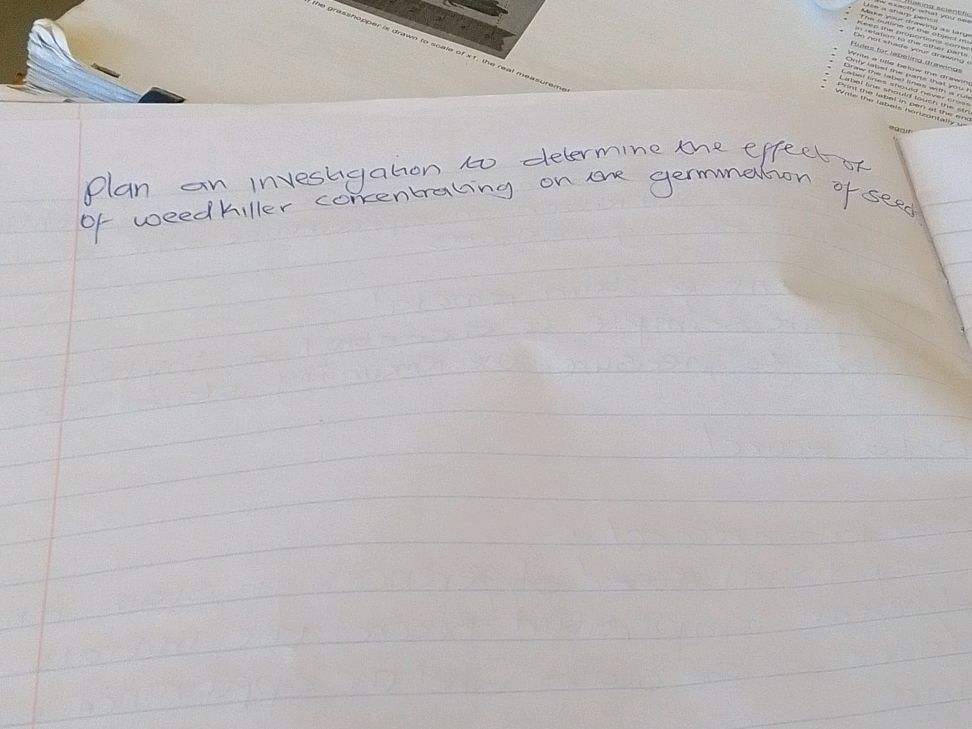 f the grasshopper is drawn to scale of x1, the real measuremen
making scientific
aw exactly what you see
Use a sharp pencil
Make your drawing as large
The outline of the object m
Keep the proportions corre
in relation to the other parts
Do not shade your drawing
Rules for labeling drawings
Write a title below the drawin
Only label the parts that you
Draw the label lines with a rule
Label lines should never cross
Label line should touch the stru
Print the label in pen at the end
Write the labels horizontally
Plan an investigation to determine the effect of
of weedkiller concentrating on the germination of seeds